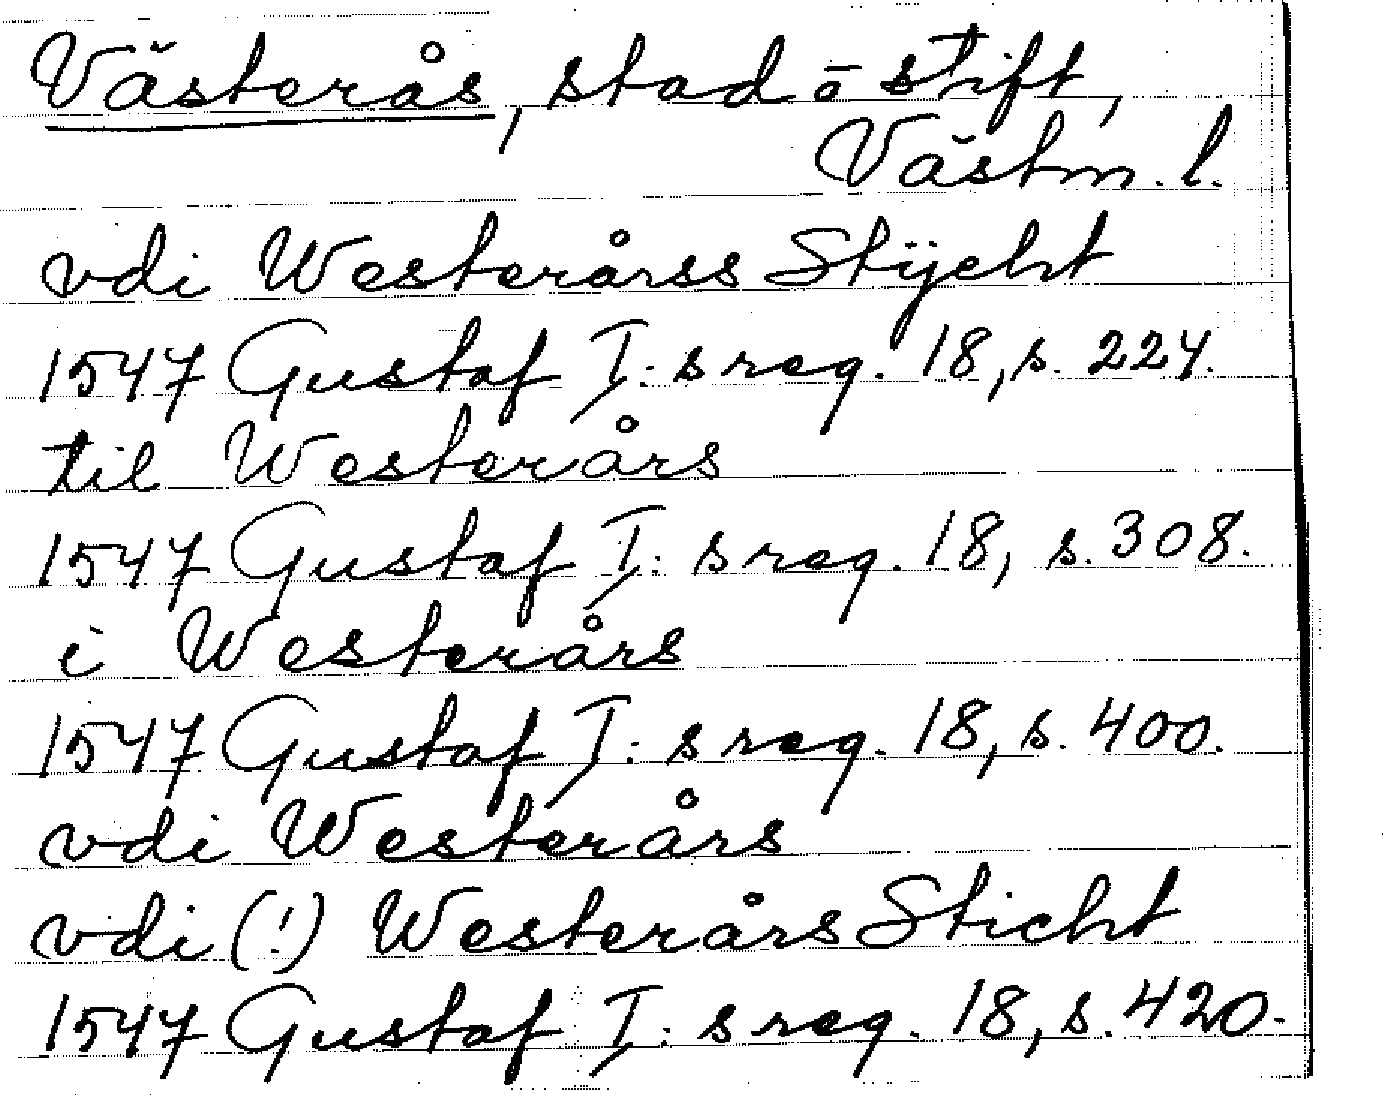 Västerås, stad o stift,
Västm. l.
vdi Westerårss Stÿcht
1547 Gustaf I:s reg. 18, s. 224.
til Westerårs
1547 Gustaf I:s reg. 18, s. 308.
i Westerårs
1547 Gustaf I:s reg. 18, s. 400.
vdi Westerårs
vdi (!) Westerårs Sticht
1547 Gustaf I:s reg. 18, s. 420.